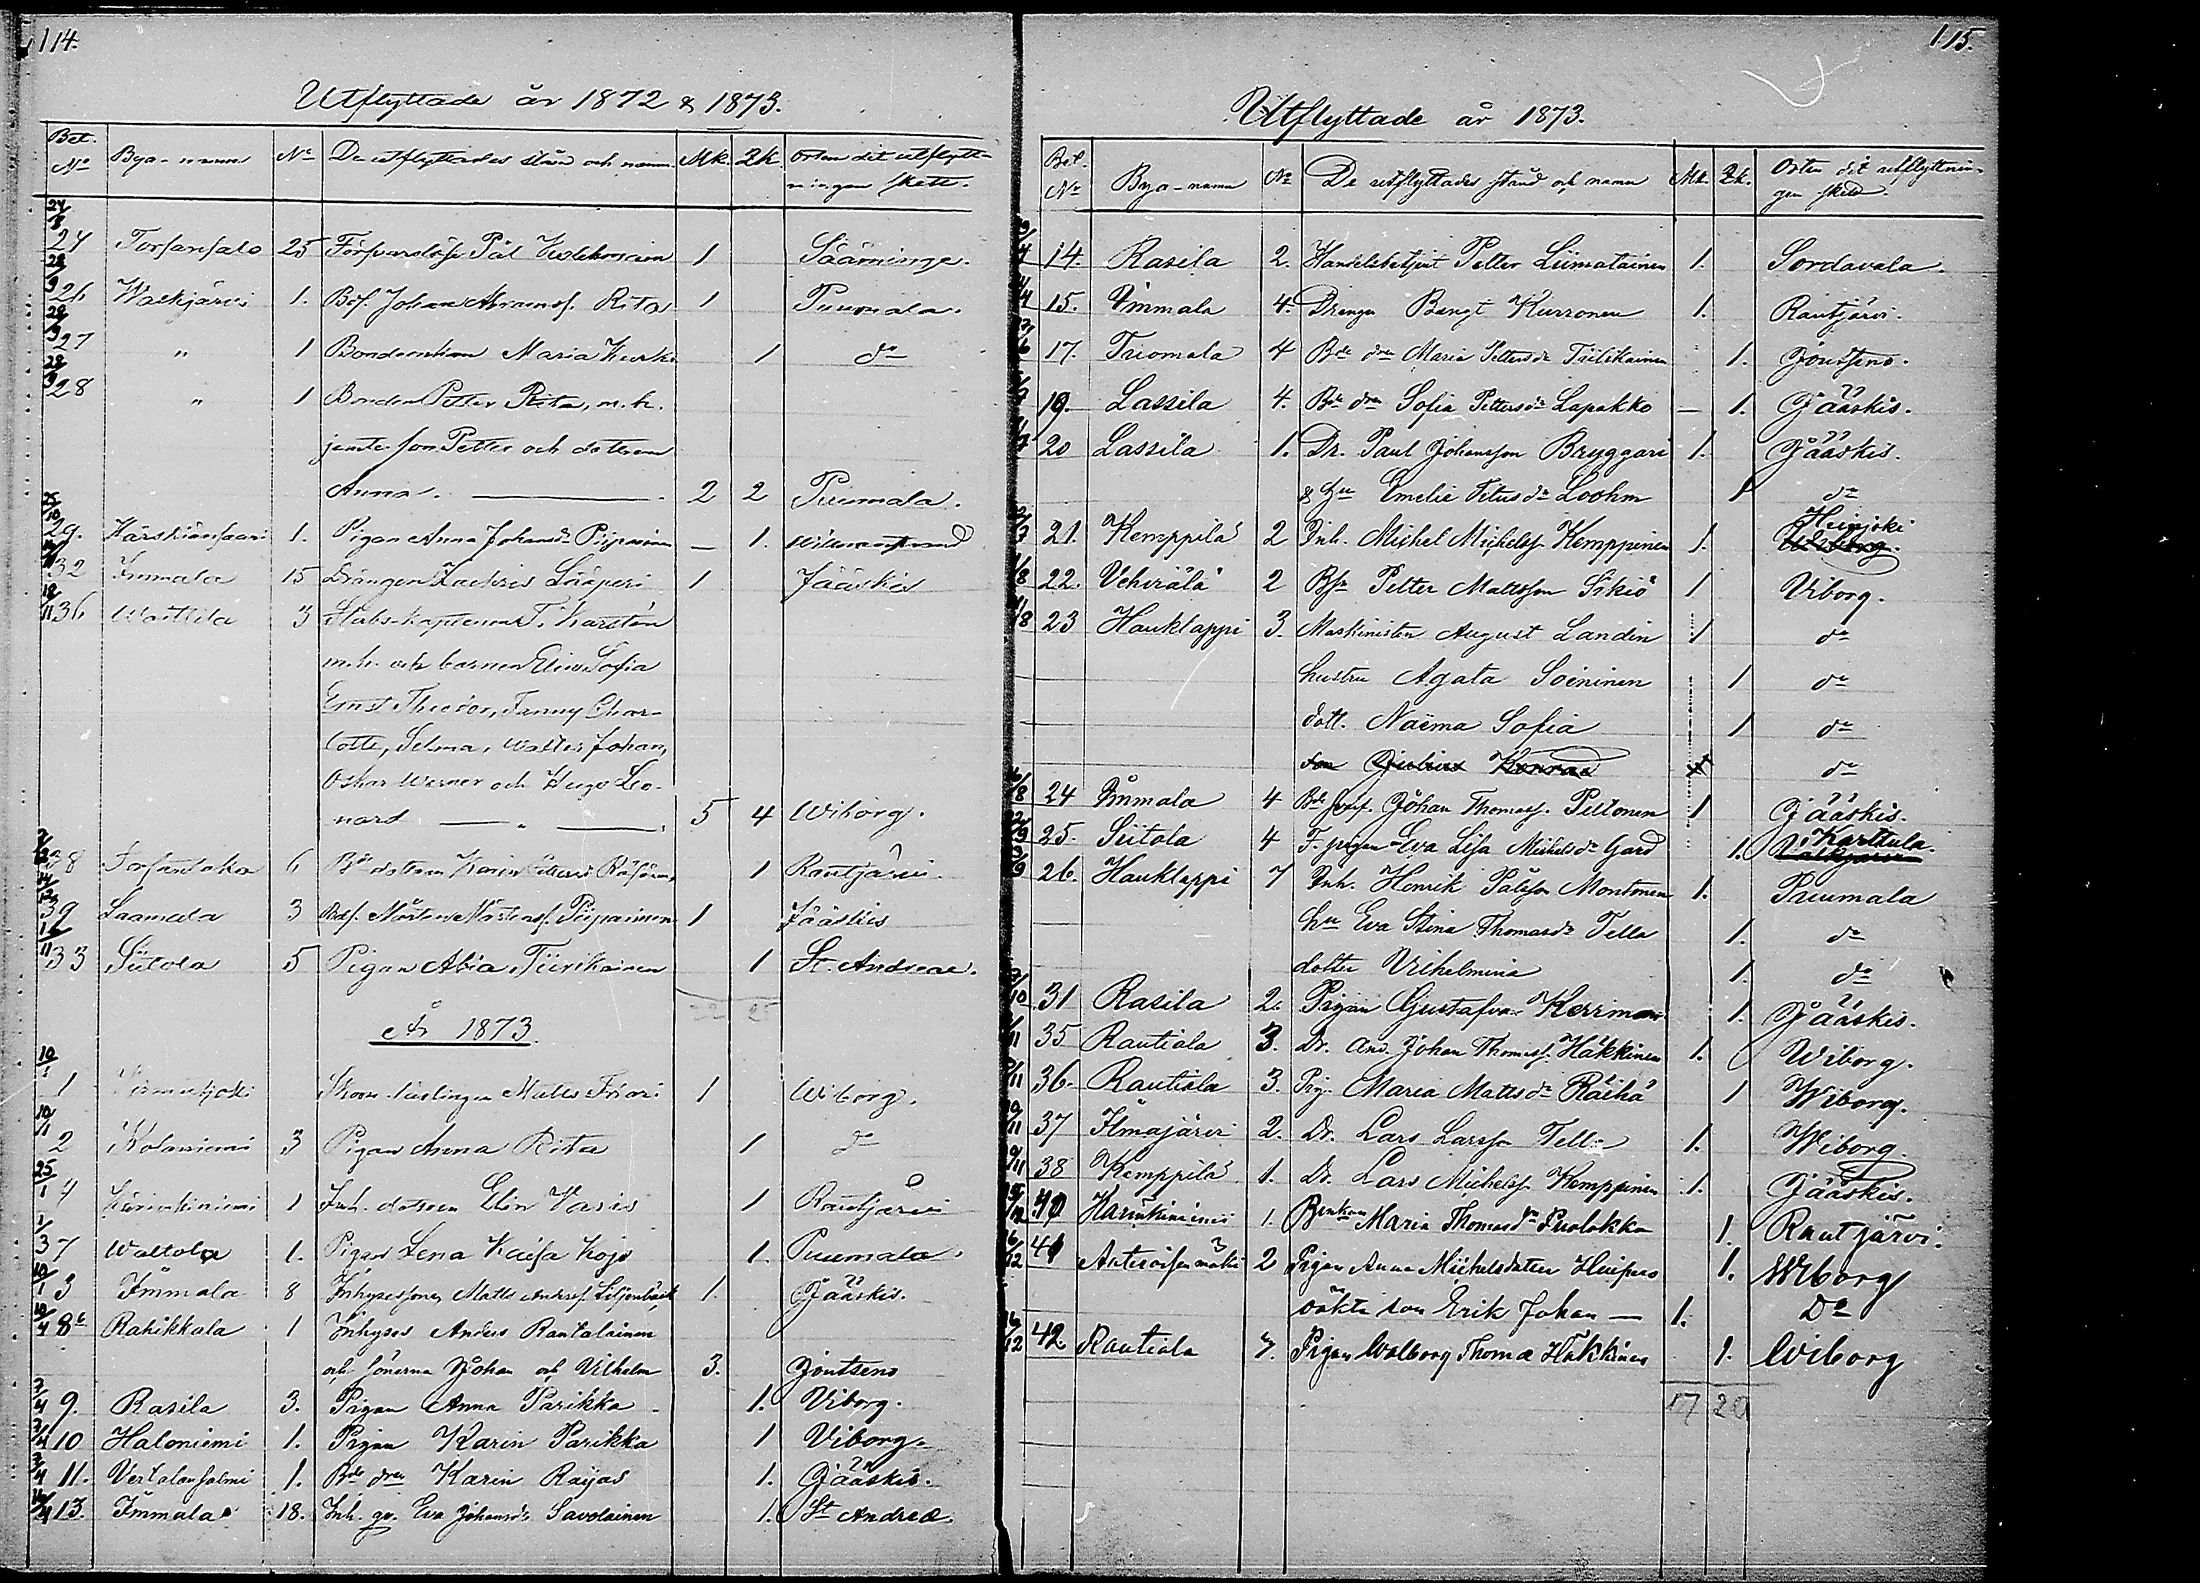 114.
Utflyttade år 1872 & 1873.
Bet. No Bya-namn No De utflyttades stånd och namn Mk. Qk. Orten dit utflytt-
ningen skett.
24/8 24 Torsansalo 25 Försvarslöse Pål 1 Sääminge.
28/9 26 Walkjärvi 1. Bdf. Johan Abramsf. Rita 1 Puumala.
28/9 27 " 1 Bondeenkan Maria Kurki 1 do
28/9 28 " 1 Bonden Petter Rita, m. h.
jemte son Petter och dottern
Anna. 2 2 Puumala.
29. Kärskiänsaari 1. Pigan Anna Johansdr Piiparinen — 1. Willmanstrand
32 Immala 15 Drängen Zachris Lääperi 1 Jääskis
36 Wattila 3 Stabs-kaptenen T. Karstén
m. h. och barnen Elin Sofia
Ernst Theodor, Fanny Char-
lotte, Selma, Walter Johan,
Oskar Werner och Hugo Leo-
nard — " — 5 4 Wiborg.
38 6 Bde dottern Karin 1 Rautjärvi.
39 Laamala 3 Bdsf. Mårten Mårtensf. Piiparinen 1 Jääskis
33 Siitola 5 Pigan Abia Tiirikainen 1 St. Andreae.
År 1873.
10/1 1 Matts Friari 1 Wiborg.
10/1 2 Kolaniemi 3 Pigan Anna Rita 1 do
25/1 4 1 Inh. dottern Elin Varis 1 Rautjärvi
1/3 7 Waltola 1. Pigan Lena Kaisa Kojo 1. Puumala.
10/1 3 Immala 8 Inhysessonen Matts Andersf. Liljenbäck 1. Jääskis.
10/4 8b Rahikkala 1 Inhyses Anders Rantalainen
och sönerna Johan och Vilhelm 3. Joutseno
2/4 9. Rasila 3. Pigan Anna Parikka 1. Viborg.
2/4 10 Haloniemi 1. Pigan Karin Parikka 1 Viborg.
2/4 11. Vertalansalmi 1. Bde drn Karin Raijas 1. Jääskis.
13. Immala 18. Inh. Eva Johansdr Savolainen 1. St Andreæ.
115.
Utflyttade år 1873.
Bet. No Bya-namn No De utflyttades stånd och namn Mk. Qk. Orten dit utflyttnin-
gen skett.
14. Rasila 2. Handelsbetjent Petter Liimatainen 1. Sordavala.
15. Immala 4. Drengen Bengt Kurronen 1. Rautjärvi.
17. Tuomala 4 Bde drn Maria Pettersdr Tiilikainen 1. Joutseno.
19. Lassila 4. Bde drn Sofia Pettersdr Lapakko — 1. Jääskis.
20 Lassila 1. Dr. Paul Johansson Bryggari 1. Jääskis.
& Hu Emelie Petersdr Loohm 1 do
21. Kemppilä 2 Inh. Michel Michelsf. Kemppinen 1. Heinjoki Wiborg.
22. Vehirälä 2 Bsn Petter Mattsson Sikiö 1 Viborg.
23 Hauklappi 3. Maskinisten August Landin 1 do
hustru Agata Soininen 1 do
dott. Naëma Sofia 1 do
son Julius Konrad do
24 Immala 4 Bde Johan Thomasf. Peltonen 1 Jääskis.
25. Siitola 4 F. pigan Eva Lisa Michelsdr Gard 1. Karttula.
26. Hauklappi 7 Inh. Henrik Pålsson Montonen 1. Puumala
hu Eva Stina Thomasdr Tella 1. do
dotter Vilhelmina 1. do
31 Rasila 2. Pigan Gustafva Herrman 1. Jääskis.
35 Rautiala 3. Dr. And. Johan Thomasf. Häkkinen 1. Wiborg.
36. Rautiala 3. Pig. Maria Mattsdr Räihä 1 Wiborg.
37 Ilmajärvi 2. Dr. Lars Larsson Tella 1. Wiborg.
38 Kemppilä 1. Dr. Lars Michelsf. Kemppinen 1. Jääskis.
40 Hariinkiniemi 1. Benkan Maria Thomasdr Puolakka 1. Rautjärvi.
41 2 Pigan Anna Michelsdotter 1. Wiborg
oäkta son Erik Johan — 1. Do
16/12 42. Rautiala 7. Pigan Walborg Thomæ Häkkinen 1. Wiborg
17 20